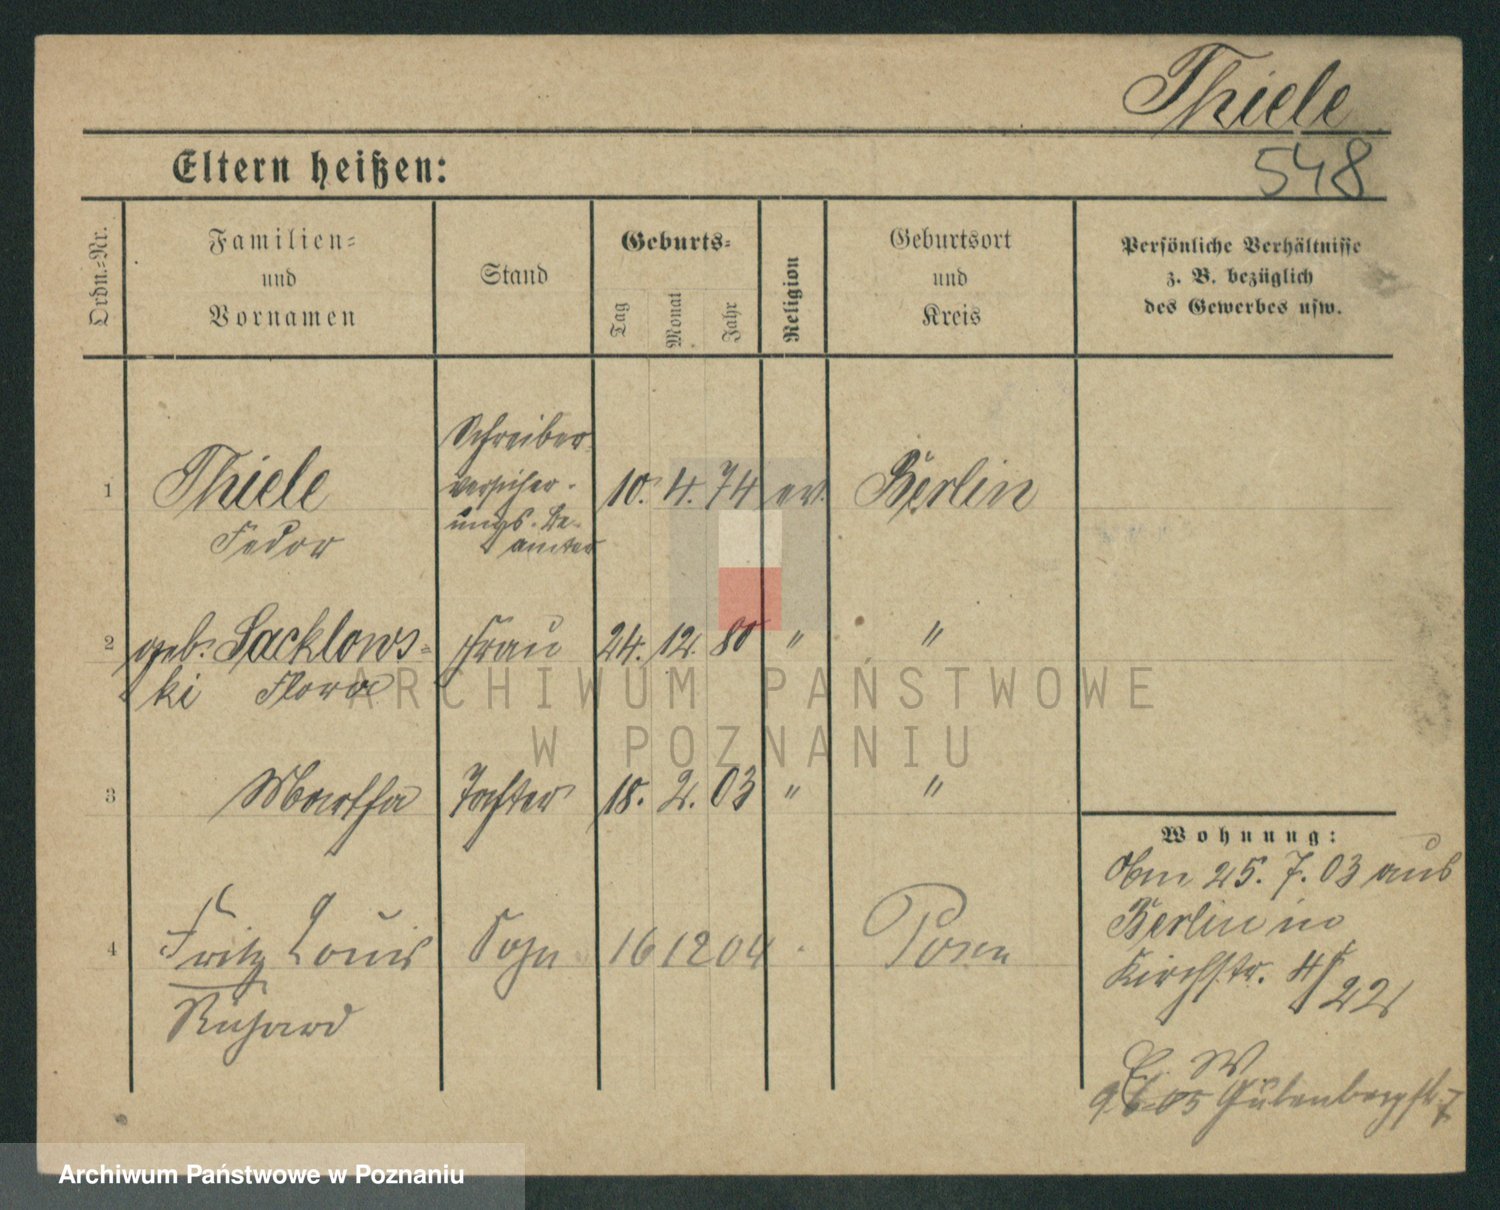 Thiele
548
Eltern heißen:
Ordn.-Nr.
Familien-
und
Vornamen
Stand
Geburts-
Tag
Monat
Jahr
Religion
Geburtsort
und
Kreis
Persönliche Verhältnisse
z. B. bezüglich
des Gewerbes usw.
Schreiber
1 Thiele versicher- 10. 4. 74 ev. Berlin
Fedor ungs-Be-
amter
2 geb. Sacklows- Frau 24. 12. 80 " "
ki Flora
ARCHIWUM PAŃSTWOWE
W POZNANIU
3 Martha Tochter 18. 2. 03 " "
4 Fritz Louis Sohn 16 12 04 Posen
Richard
Wohnung:
25. 7. 03 aus
Berlin in
Kirchstr. 4
9. 6. 05 Gutenbergstr. 7
Archiwum Państwowe w Poznaniu